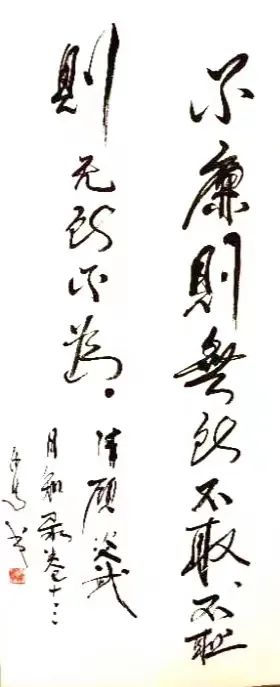 不廉則無所不取、不耻
則无所不為。
清顾炎武
日知录卷十三
书